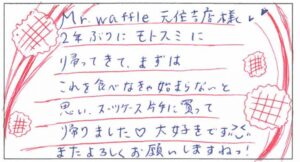 Mr. waffle 元住吉店様
2年ぶりにモトスミに
帰ってきて、まずは
これを食べなきゃ始まらないと
思い、スーツケース片手に買って
帰りました♡ 大好きです
またよろしくお願いしますねっ!